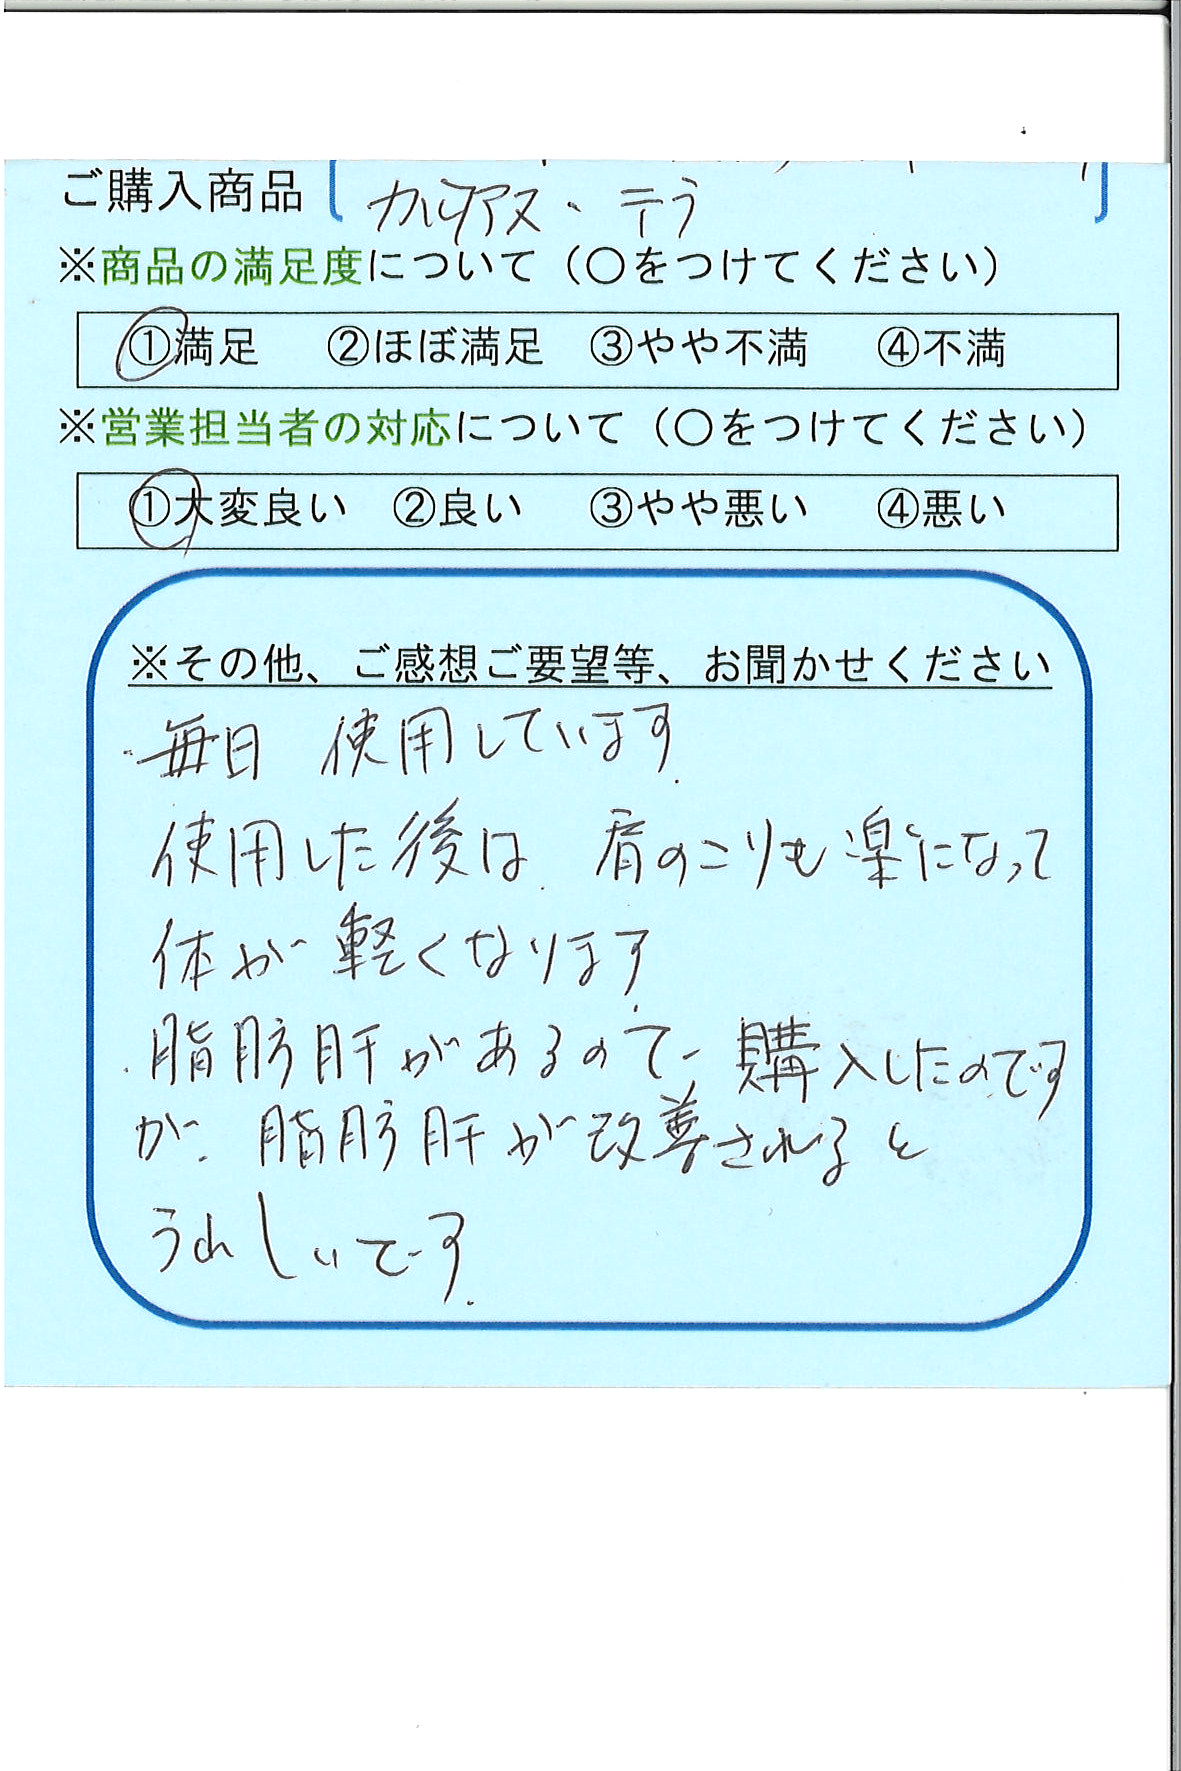 ご購入商品
テラ
※商品の満足度について（○をつけてください）
①満足 ②ほぼ満足 ③やや不満 ④不満
※営業担当者の対応について（○をつけてください）
①大変良い ②良い ③やや悪い ④悪い
※その他、ご感想ご要望等、お聞かせください
・毎日 使用しています.
使用した後は、肩のこりも楽になって
体が軽くなります.
・脂肪肝があるので 購入したのです
が、脂肪肝が改善されると
うれしいです.